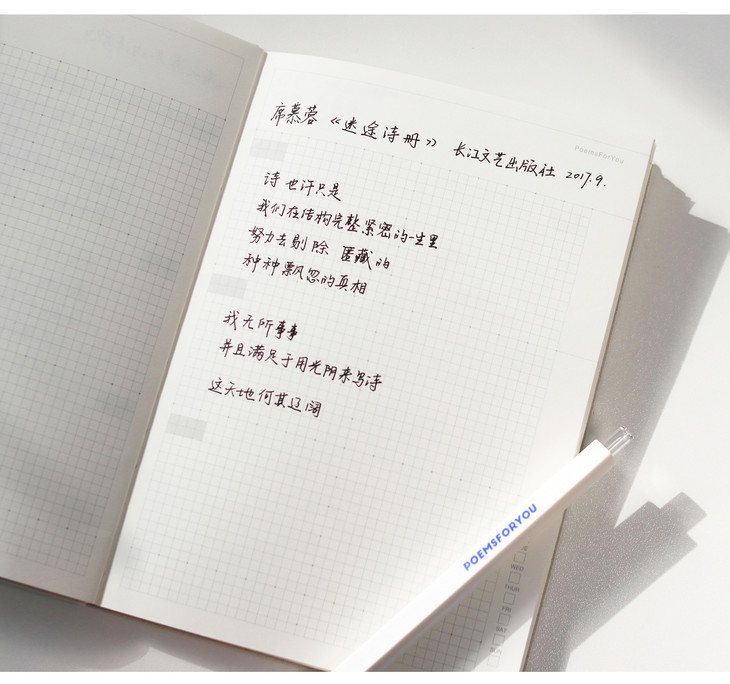 PoemsForYou
席慕蓉 《迷途诗册》 长江文艺出版社 2017.9.
诗也许只是
我们在结构完整紧密的一生里
努力去剔除 匿藏的
种种飘忽的真相
我无所事事
并且满足于用光阴来写诗
这天地何其辽阔
POEMSFORYOU
WED
THUR
FRI
SAT